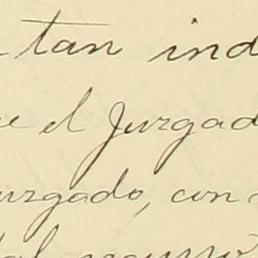 tan ind
e el Juzgad
uzgado, con
tal